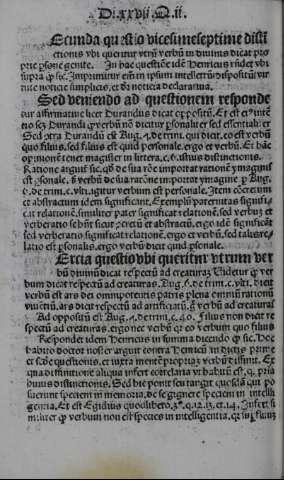 Di.xxvii Q.ii.
Ecunda quęstio vicesimeseptime disti
ctionis vbi queritur vtrū verbū in diuinis dicat pro
prie psone gente. In hac questiōe idē Henricus rn̄det vbi
supra
notitie simplicis, et d̄r notitia declaratiua.
Sed veniendo ad questionem responde
tur affirmatiue licet Durandus dicat oppositū. Et est
tio sez Durandi verbū nō dicitur psonaliter sed essentialiter
Sed cōtra Durandū est Aug. de trini. qui dicit, eo est verbū
quo filius, sed filius est quid personale. ergo et verbū. Et hāc
opinionē tenet magister in littera, istius distinctionis.
Ratione arguit sic, qd̄ de sua rōne importat rationē ymaginis
est psonale, verbū de sua ratiōe importat ymaginē
de trin. igitur verbum est personale. Item concretum
et abstractum idem significant. Exemplū paternitas signifi
cat relationē, similiter pater significat relationē, sed verbuz et
verberatio se hn̄t sicut cretū et abstractū. ergo idē significāt
sed verberatio significat relationē, ergo et verbū, sed talis re
latio est psonalis. ergo verbū dicit quid psonale.
Ercia questio vbi queritur vtrum ver
bū diuinū dicat respectū ad creaturaz Videtur ver
bum dicat respectū ad creaturas. Aug. de trini. dicit,
verbū est ars dei omnipotentis patris plena omniū rationū
viuētiū, ars dicit respectū ad artificiatū. verbū ad creaturā
Ad oppositū est Aug. de trini. Filius non dicit re
spectū ad creaturas. ergo nec verbū qr eo verbum quo filius
Respondet idem Henricus in summa dicendo sic. Hoc
habito doctor noster arguit contra Henricū in distis prime
et scd̄e questionis, et iuxta mentē propriaz verbū diffinit. Ex
qua diffinitione aliqua infert correlaria vt habita est, pria
huius distinctionis. Sed hic ponit seu tangit quosdā qui po
suerunt speciem in memoria, de se gignere speciem in intelli
gentia. Et est Egidius quotlibero. et 14. Infert si
militer verbum non est species in intelligentia,